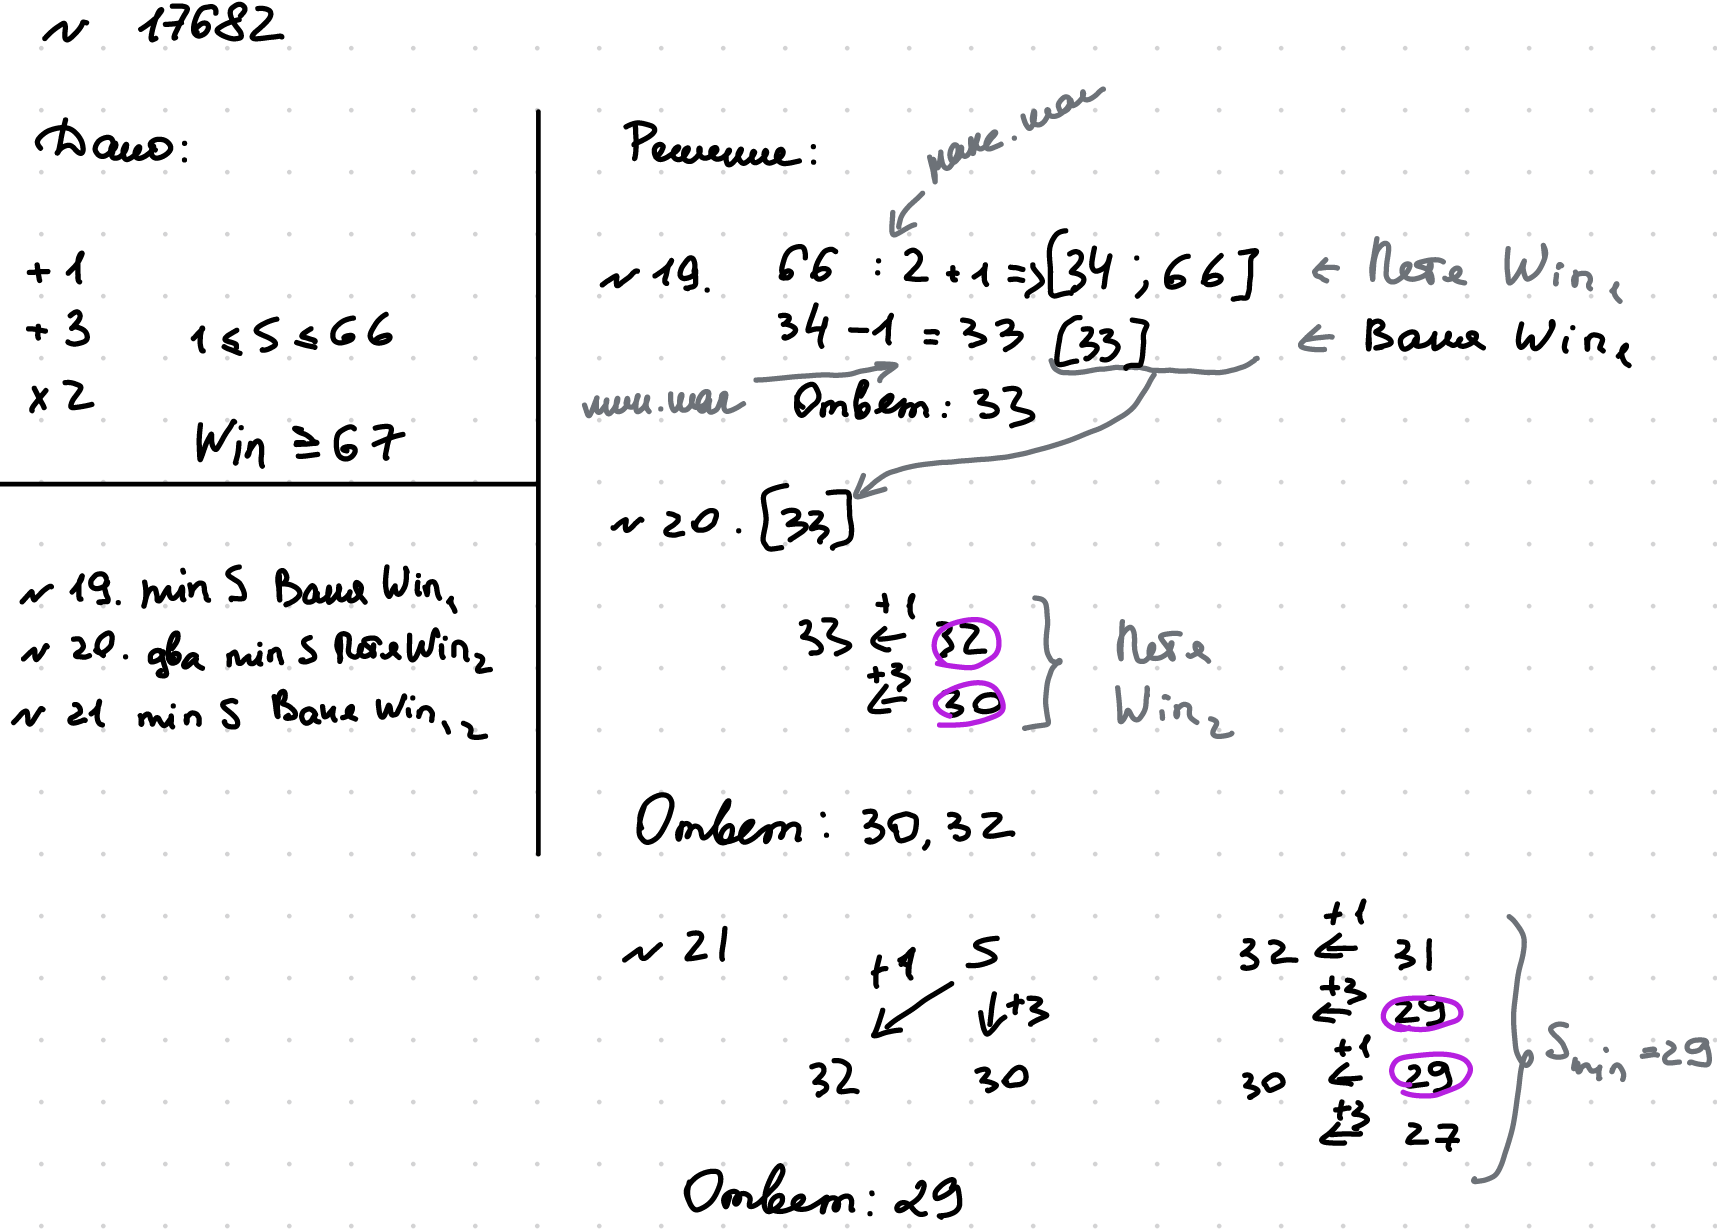 ~ 17682
Дано:
+ 1
+ 3
x 2
1 ≤ S ≤ 66
Win ≥ 67
~ 19. min S Ваня Win₁
~ 20. два min S Петя Win₂
~ 21 min S Ваня Win₁,₂
Решение:
макс. шаг
~ 19. 66 : 2 + 1 => [34 ; 66] ← Петя Win₁
34 - 1 = 33 [33] ← Ваня Win₁
мин. шаг
Ответ: 33
~ 20. [33]
+1
33 ← 32
+3
← 30
Петя
Win₂
Ответ: 30, 32
~ 21
S
+1
+3
32 30
+1
32 ← 31
+3
← 29
+1
30 ← 29
+3
← 27
Smin = 29
Ответ: 29